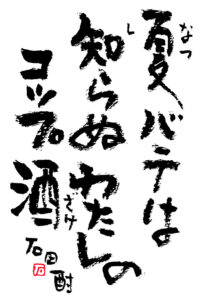 夏バテは
知らぬわたしの
コップ酒
石田酎